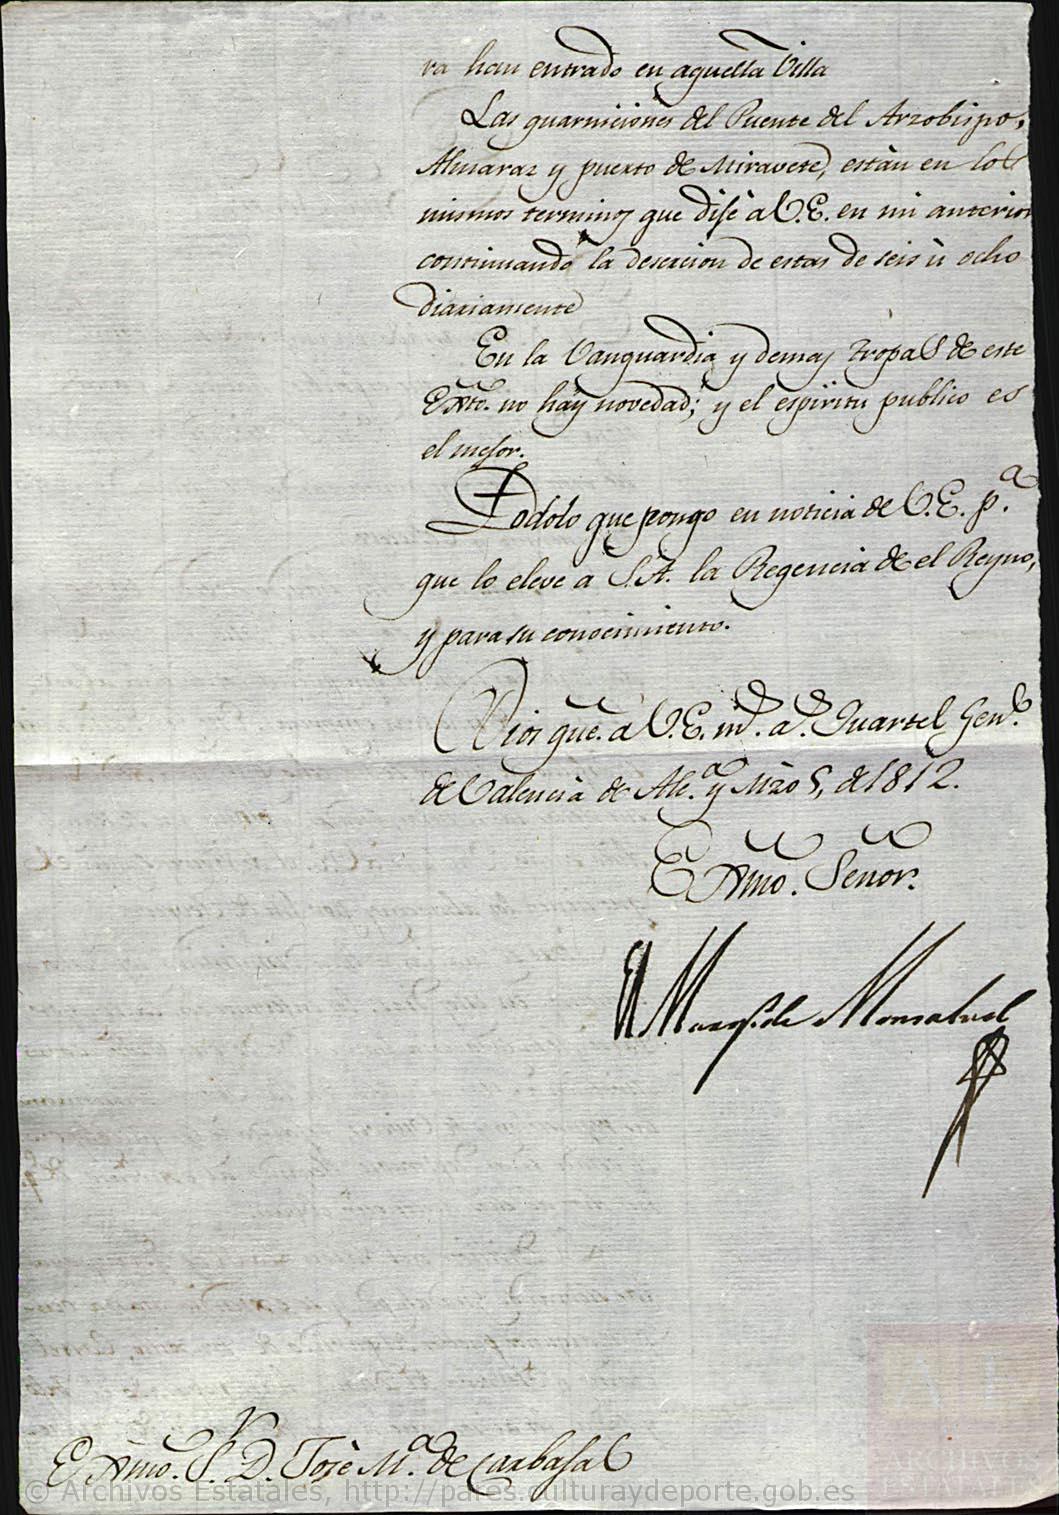 ra han entrado en aquella Villa
Las guarniciones del Puente del Arzobispo,
Almaraz y puerto de Miravete, están en los
mismos terminos que dije a V.E. en mi anterior
continuando la desercion de estas de seis ù ocho
diariamente
En la Vanguardia y demas tropas de este
Exto. no hay novedad; y el espiritu publico es
el mejor.
Todo lo que pongo en noticia de V.E. p.a
que lo eleve a S.A. la Regencia de el Reyno,
y para su conocimiento.
Dios gue. a V.E. m.s a.s Quartel Gen.l
de Valencia de Alc.a y Mzo 5, de 1812.
Exmo. Señor.
El Marqs. de Monsalud
Exmo. S.r D. Josè M.a de Carbajal
© Archivos Estatales, http://pares.culturaydeporte.gob.es